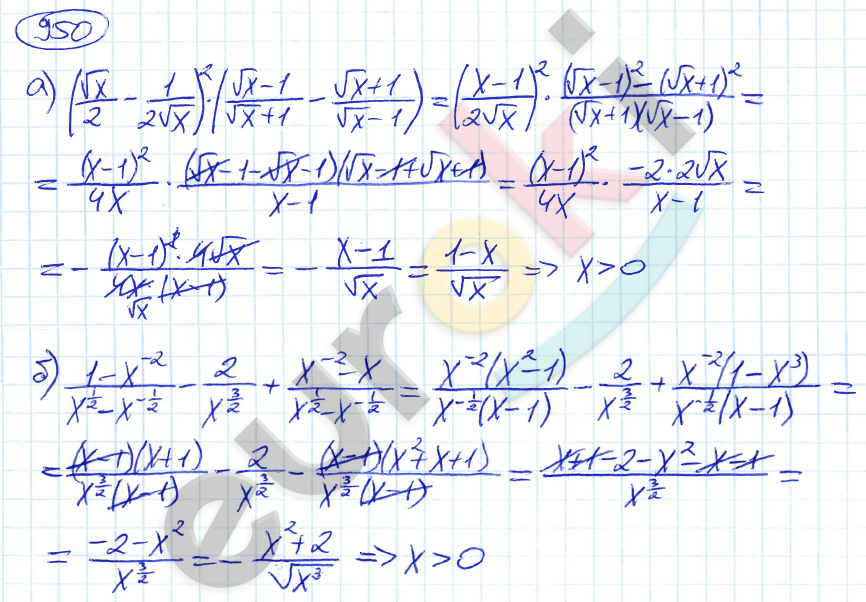 950
а) (√x/2 − 1/(2√x))² · ((√x−1)/(√x+1) − (√x+1)/(√x−1)) = ((x−1)/(2√x))² · ((√x−1)² − (√x+1)²)/((√x+1)(√x−1)) =
= (x−1)²/(4x) · ((√x−1−√x−1)(√x−1+√x+1))/(x−1) = (x−1)²/(4x) · (−2·2√x)/(x−1) =
= − ((x−1)² · 4√x)/(4x (x−1)) √x = − (x−1)/√x = (1−x)/√x => x>0
б) (1−x⁻²)/(x^(1/2)−x^(−1/2)) − 2/x^(3/2) + (x⁻²−x)/(x^(1/2)−x^(−1/2)) = (x⁻²(x²−1))/(x^(−1/2)(x−1)) − 2/x^(3/2) + (x⁻²(1−x³))/(x^(−1/2)(x−1)) =
= ((x−1)(x+1))/(x^(3/2)(x−1)) − 2/x^(3/2) − ((x−1)(x²+x+1))/(x^(3/2)(x−1)) = (x+1−2−x²−x−1)/x^(3/2) =
= (−2−x²)/x^(3/2) = − (x²+2)/√x³ => x>0
euroki